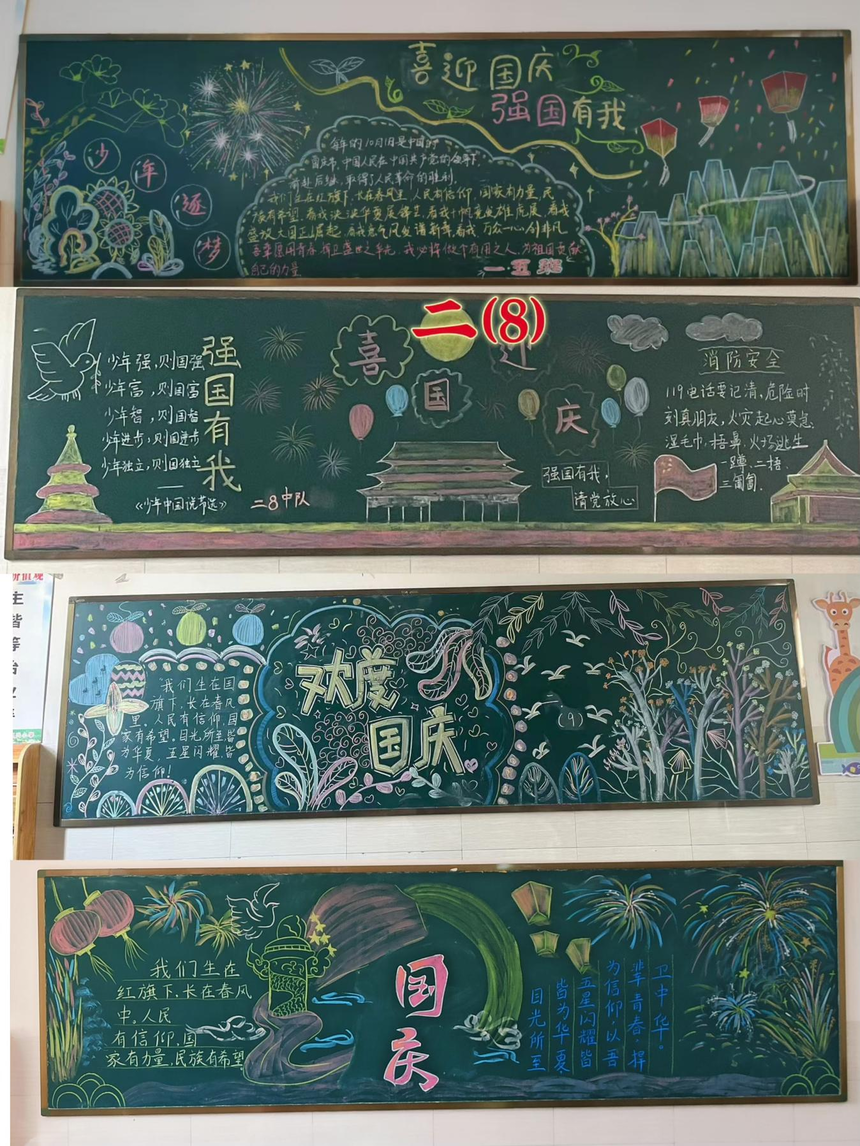 喜迎国庆
强国有我
少年逐梦
每年的10月1日是中国的
国庆节,中国人民在中国共产党的领导下
前赴后继,取得了人民革命的胜利
我们生在红旗下,长在春风里,人民有信仰,国家有力量,民
族有希望,看我泱泱华夏展锋芒,看我
盛放,看我意气风发谱新章,看我万众一心创非凡
吾辈愿用青春捍卫盛世之华光,我必将做个有用之人,为祖国贡献
自己的力量
一五班
二(8)
喜迎国庆
强国有我
少年强,则国强
少年富,则国富
少年智,则国智
少年进步,则国进步
少年独立,则国独立
——《少年中国说节选》
二8中队
强国有我,
请党放心
消防安全
119电话要记清,危险时
刻真朋友,火灾起心莫急
湿毛巾,捂鼻,火场逃生
一蹲,二捂,
三匍匐.
价值观
欢度
国庆
我们生在国
旗下,长在春风
里,人民有信仰,国
家有希望,目光所至皆
为华夏,五星闪耀皆
为信仰!
国庆
我们生在
红旗下,长在春风
中。人民
有信仰,国
家有力量,民族有希望
目光所至
皆为华夏
五星闪耀皆
为信仰,以吾
辈青春,捍
卫中华.